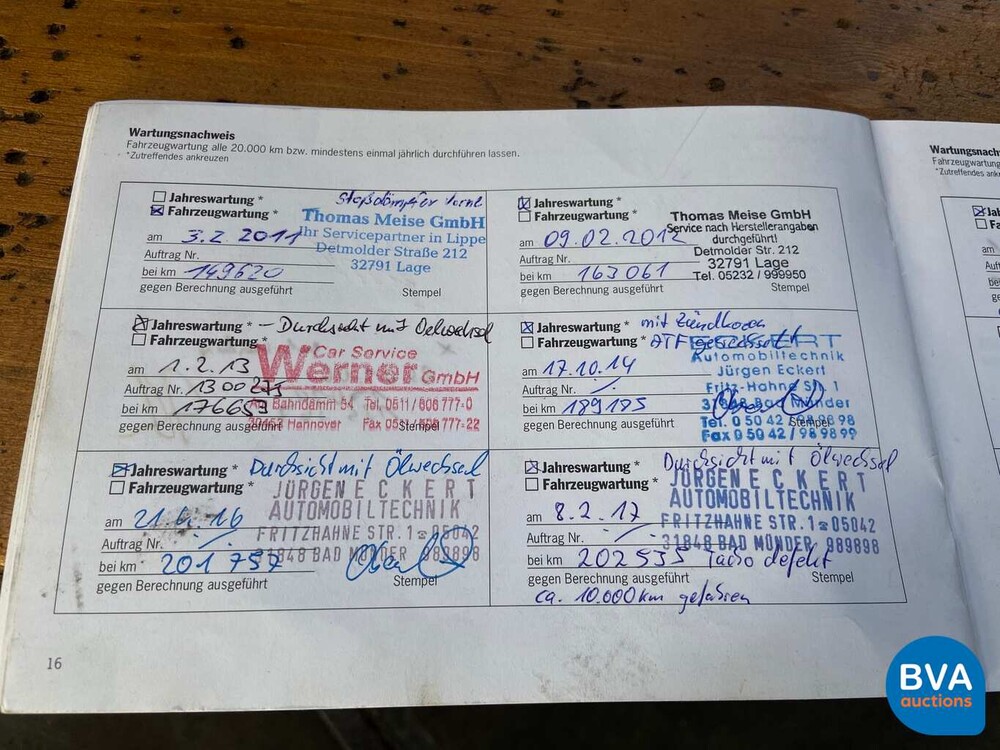 Wartungsnachweis
Fahrzeugwartung alle 20.000 km bzw. mindestens einmal jährlich durchführen lassen.
*Zutreffendes ankreuzen
Jahreswartung *
Fahrzeugwartung *
am 3.2.2011
Auftrag Nr.
bei km 149620
gegen Berechnung ausgeführt
Stempel
Thomas Meise GmbH
Ihr Servicepartner in Lippe
Detmolder Straße 212
32791 Lage
Jahreswartung *
Fahrzeugwartung *
am 09.02.2012
Auftrag Nr.
bei km 163061
gegen Berechnung ausgeführt
Stempel
Thomas Meise GmbH
Service nach Herstellerangaben
durchgeführt!
Detmolder Str. 212
32791 Lage
Tel. 05232 / 999950
Jahreswartung * - Durchsicht mit Oelwechsel
Fahrzeugwartung *
am 1.2.13
Auftrag Nr. 1300275
bei km 176653
gegen Berechnung ausgeführt
Stempel
Car Service
Werner GmbH
Am Bahndamm 54 Tel. 0511/606 777-0
Hannover Fax 777-22
Jahreswartung * mit Zündkerzen
Fahrzeugwartung * ATF
am 17.10.14
Auftrag Nr.
bei km 189185
gegen Berechnung ausgeführt
Stempel
ECKERT
Automobiltechnik
Jürgen Eckert
Fritz-Hahne Str. 1
31848 Bad Münder
Tel. 0 50 42 / 98 98 98
Fax 0 50 42 / 98 98 99
Jahreswartung * Durchsicht mit Ölwechsel
Fahrzeugwartung *
am 21.4.16
Auftrag Nr.
bei km 201757
gegen Berechnung ausgeführt
Stempel
JÜRGEN ECKERT
AUTOMOBILTECHNIK
FRITZHAHNE STR. 1 ☎ 05042
31848 BAD MÜNDER 989898
Jahreswartung * Durchsicht mit Ölwechsel
Fahrzeugwartung *
am 8.2.17
Auftrag Nr.
bei km 202535 Tacho defekt
gegen Berechnung ausgeführt
Stempel
ca. 10.000km gefahren
JÜRGEN ECKERT
AUTOMOBILTECHNIK
FRITZHAHNE STR. 1 ☎ 05042
31848 BAD MÜNDER 989898
16
Wartungsnach
Fahrzeugwartung
*Zutreffendes ank
BVA
auctions